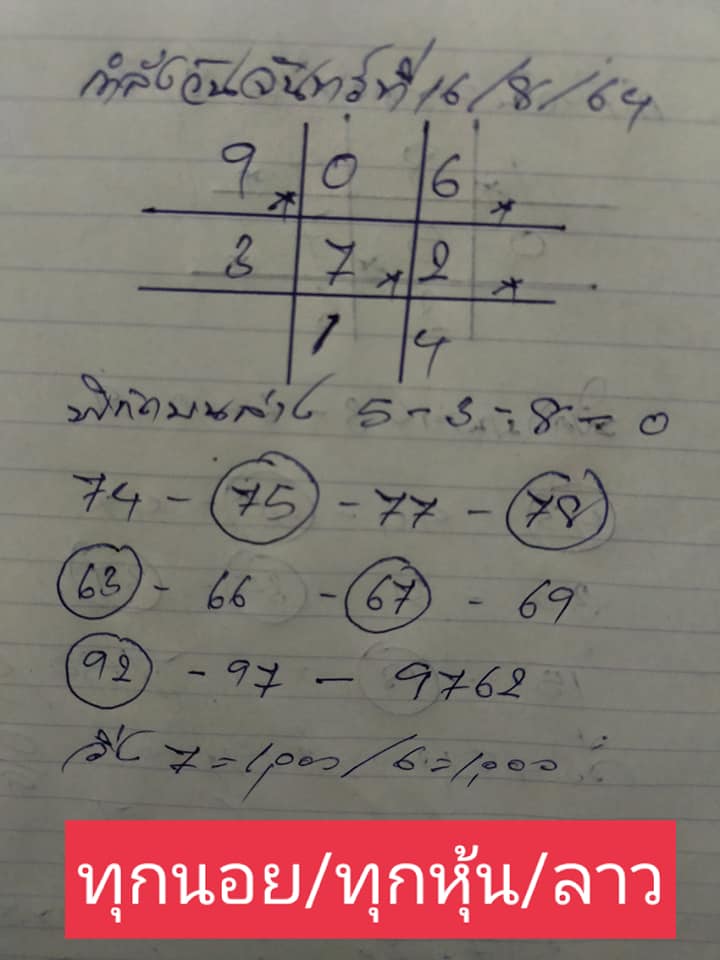 กำลังวันจันทร์ที่ 16/8/64
9 0 6
3 7 2
1 4
พิกัดบนล่าง 5-3-8-0
74 - 75 - 77 - 78
63 - 66 - 67 - 69
92 - 97 - 9762
วิ่ง 7=1,000/6=1,000
ทุกนอย/ทุกหุ้น/ลาว